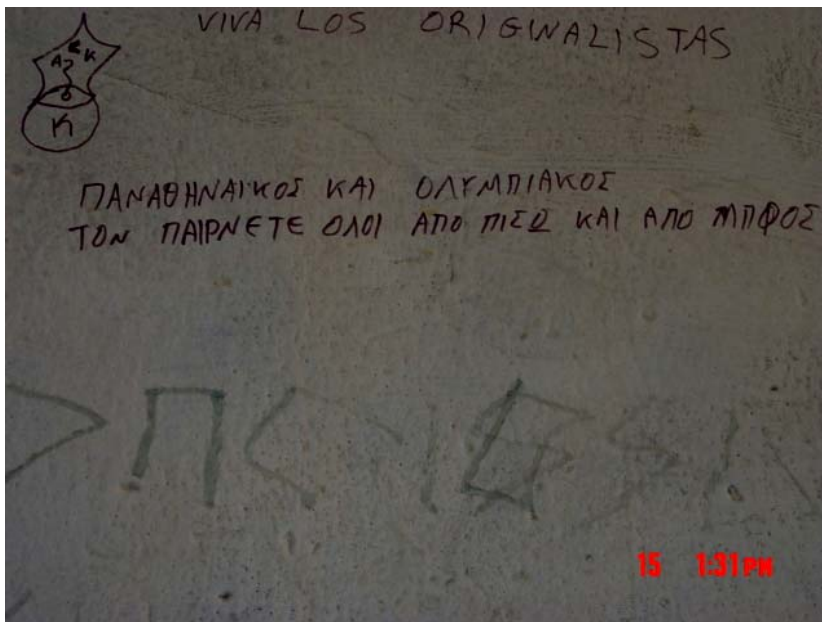 VIVA LOS ORIGINALISTAS
A E K
K
ΠΑΝΑΘΗΝΑΙΚΟΣ ΚΑΙ ΟΛΥΜΠΙΑΚΟΣ
ΤΟΝ ΠΑΙΡΝΕΤΕ ΟΛΟΙ ΑΠΟ ΠΙΣΩ ΚΑΙ ΑΠΟ ΜΠΦΟΣ
15 1:31 PM